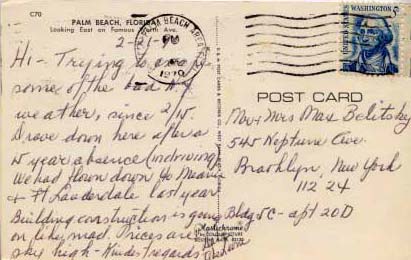 C70
PALM BEACH, FLORIDA
Looking East on Famous Worth Ave.
Hi - Trying to avoid
some of the bad N.Y.
weather, since 2/15.
Drove down here after a
15 year absence (in driving)
We had flown down to Miami
& Ft Lauderdale last year.
Building construction is going
on like mad. Prices are
sky high - Kindest regards
PALM BEACH AREA
1970
UNITED STATES
WASHINGTON 5¢
POST CARD
Mr & Mrs Max Belitsky
545 Neptune Ave.
Brooklyn, New York
112 24
Bldg 5C - apt 20D
Plastichrome